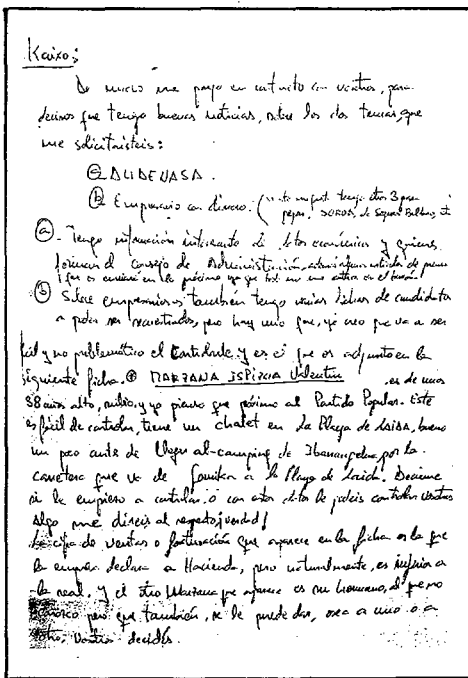 Kaixo:
De nuevo me pongo en contacto con vosotros, para
deciros que tengo buenas noticias, sobre los dos temas, que
me solicitasteis:
a ALIDENASA.
b Empresario con dinero. ( tengo otros 3 para
a - Tengo información interesante de datos económicos y quienes
forman el consejo de Administración,
b Sobre empresarios también tengo varias fichas de candidatos
a poder ser secuestrados, pero hay uno que, yo creo que va a ser
fácil y no problemático el controlarle y es el que os adjunto en la
siguiente ficha. Valentín es de unos
38 años alto, rubio, y yo pienso que próximo al Partido Popular. Este
es fácil de controlar, tiene un chalet en la Playa de LAIDA, bueno
un poco antes de llegar al camping de por la
carretera que va de a la Playa de Laida. Decirme
si le empiezo a controlar o con estos datos le podéis controlar vosotros
Algo me diréis al respecto ¡verdad!
La cifra de ventas o facturación que aparece en la ficha es la que
la empresa declara a Hacienda, pero naturalmente, es inferior a
la real, y el otro que aparece es su hermano, al que no
conozco pero que también, se le puede dar, osea a uno o a
otro, vosotros decidís.